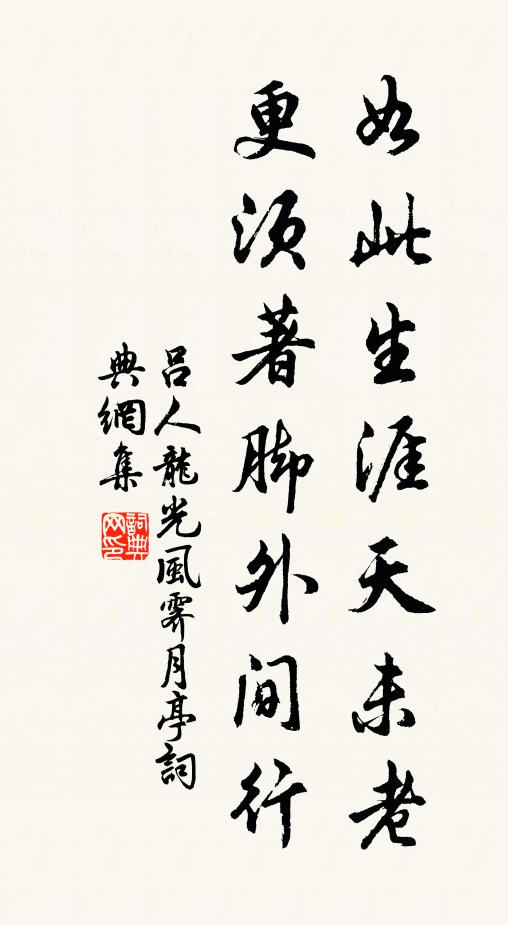 如此生涯天未老
更須著脚外間行
呂人龍光風霽月亭詞
典網集
詞典
網印